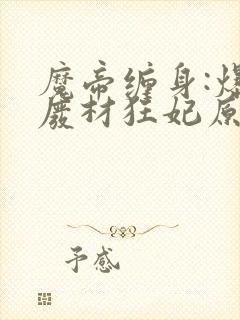 魔帝缠身:爆
废材狂妃原
予感